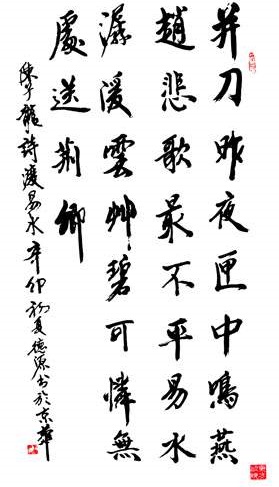 并刀昨夜匣中鳴燕
趙悲歌最不平易水
潺湲雲艸碧可憐無
處送荊卿
陳子龍詩渡易水辛卯初夏德源書於京華